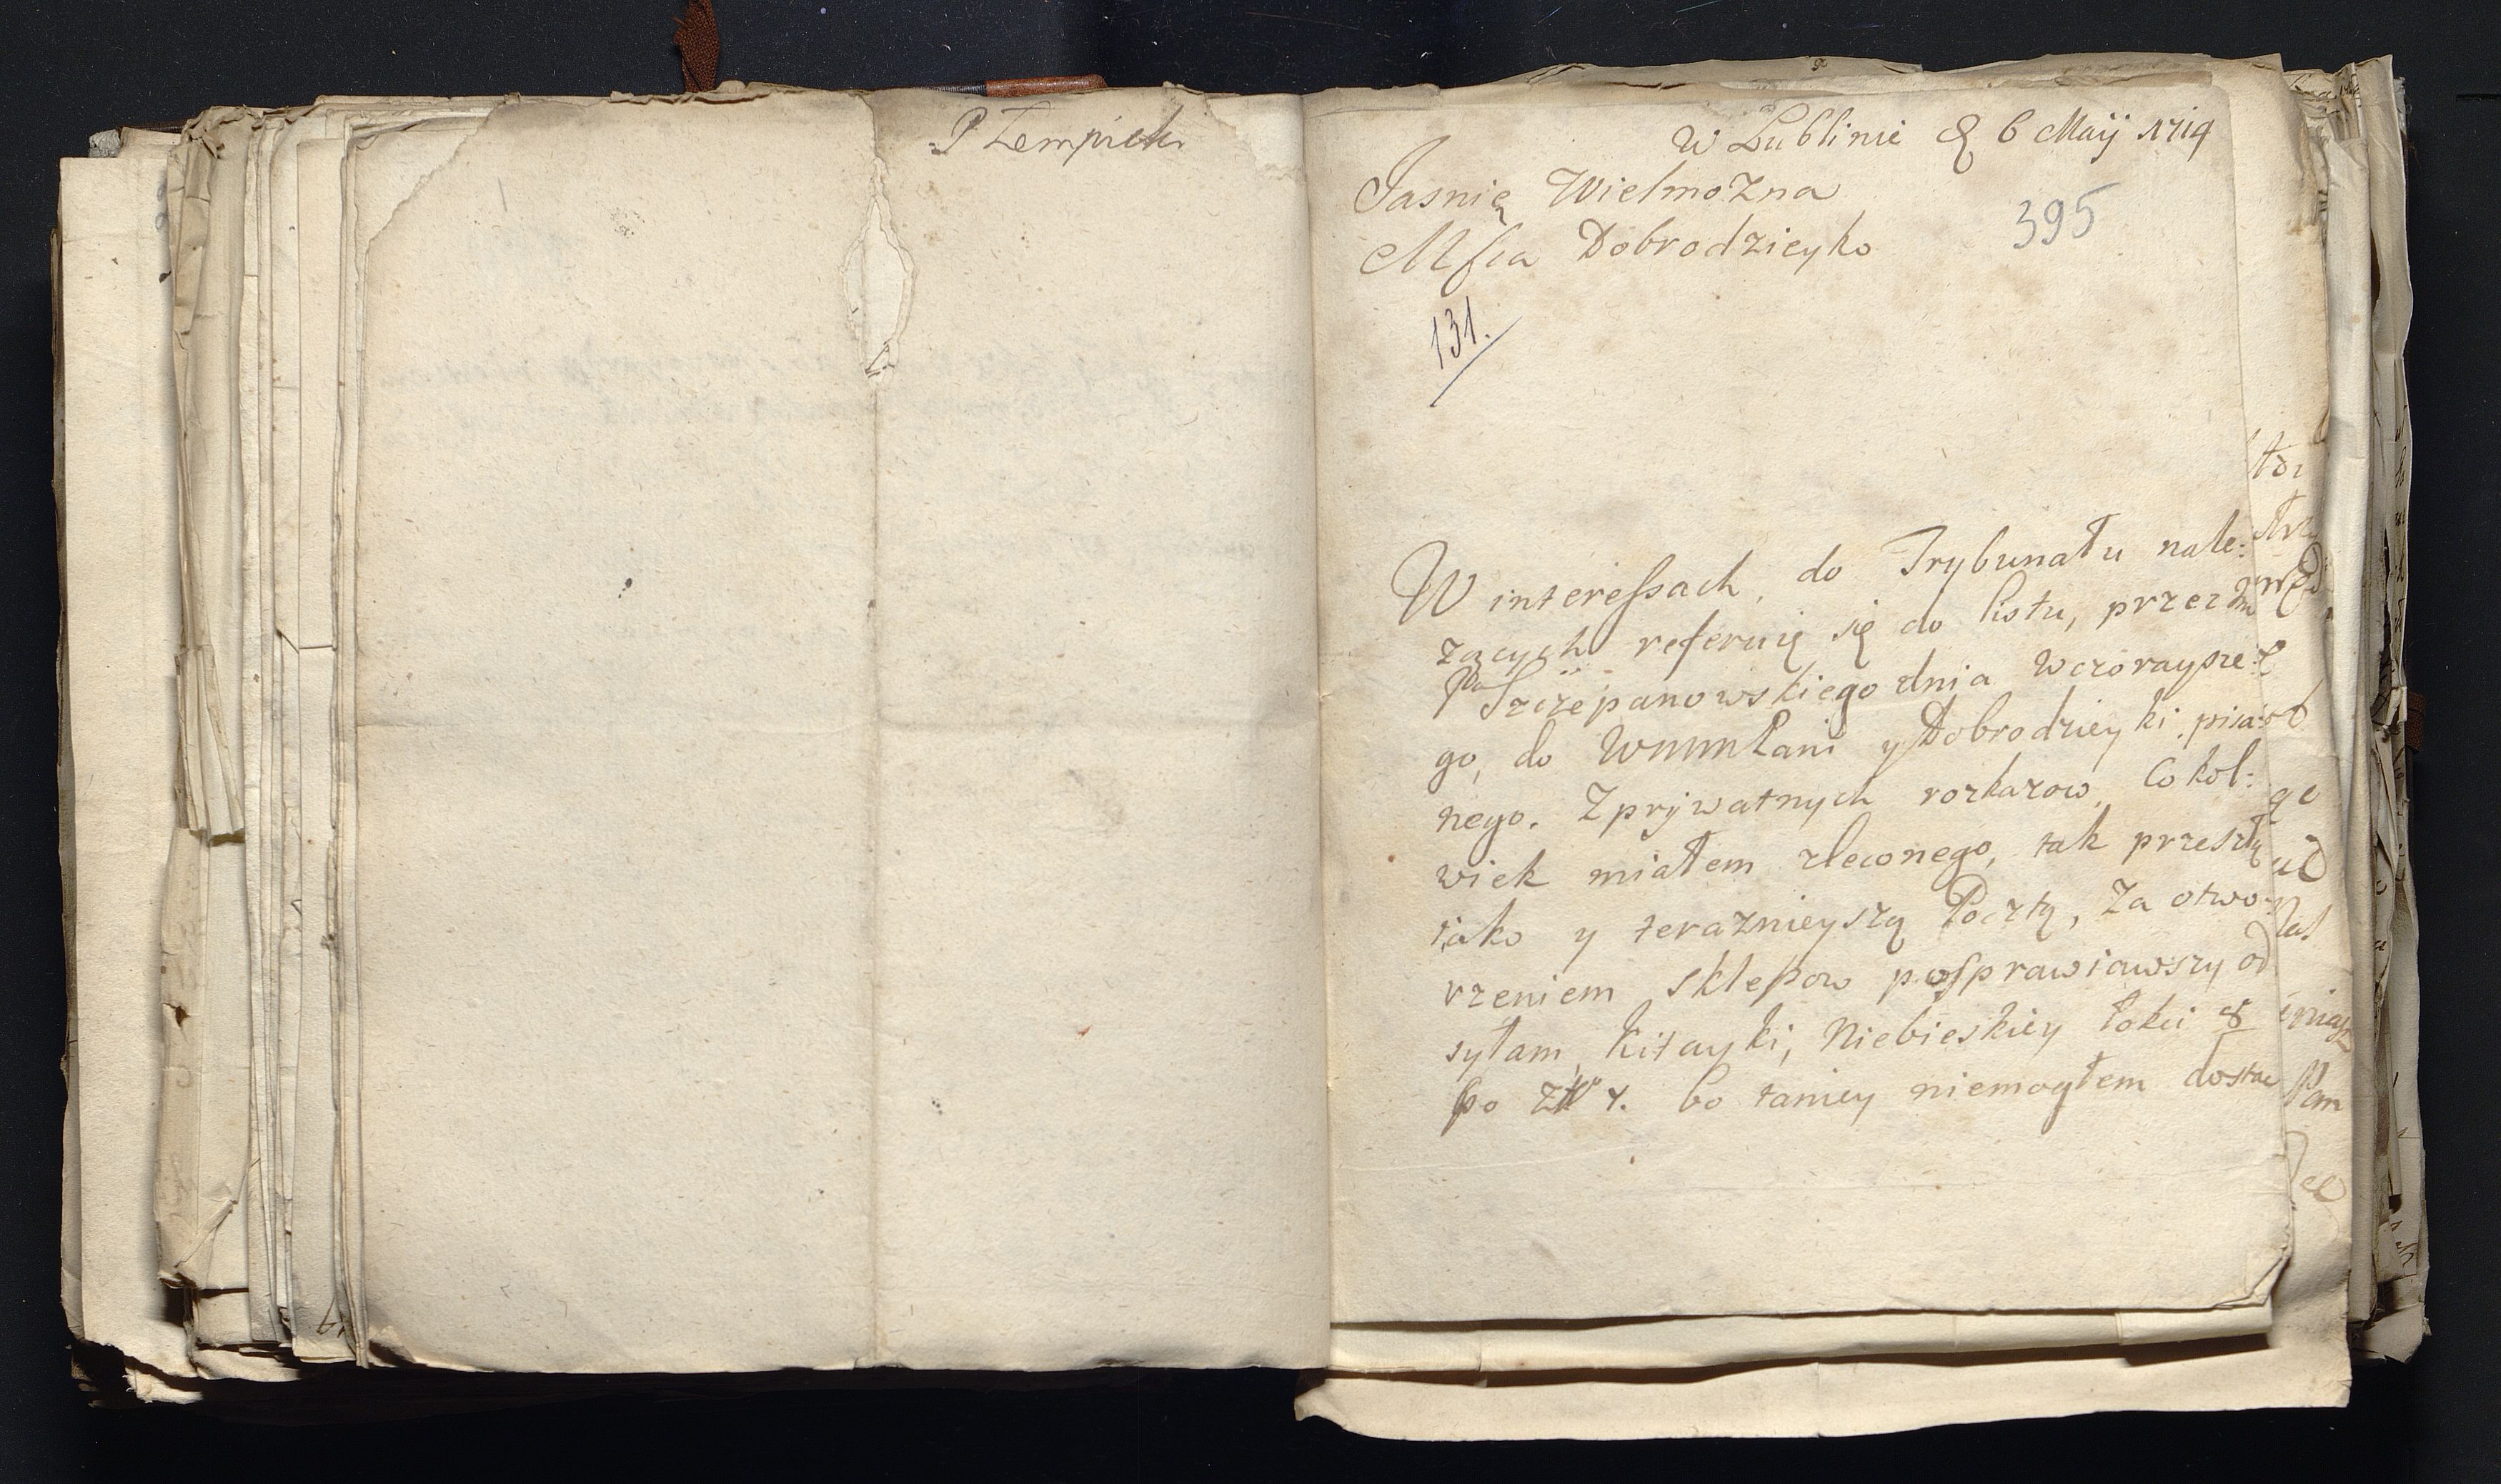 P Łempicki
W Lublinie d 6 Maij 1714
Jasnię Wielmozna
Mścia Dobrodzieyko
395
131.
W interessach, do Trybunału nale:
zących referuię się do listu, przez Im
Pa Szczepanowskiego dnia wczorayszе:
go, do WMMPani y Dobrodzieyki, pisa:
nego. Z prywatnych rozkazow, Cokol:
wiek miałem zleconego, tak przeszłą
iako y teraznieyszą Pocztą, Za otwo:
rzeniem sklepow posprawiawszy od
syłam, Kitayki, Niebieskiey łokci 8
po zł 4. bo taniey niemogłem dostac